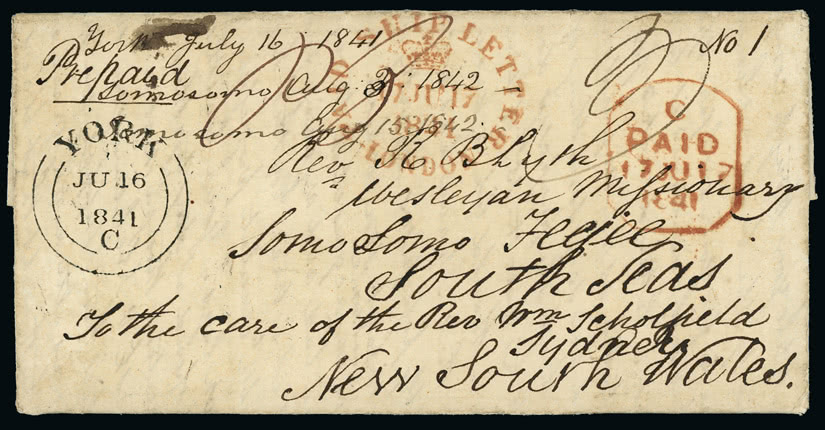 York July 16 1841
No 1
Prepaid
Somosomo Aug 3 1842
Somosomo Aug 15 1842
PAID SHIP LETTER LONDON
17 JU 17
1841
C
PAID
17 JU 17
1841
YORK
JU 16
1841
C
Rev R B Lyth
Wesleyan Missionary
Somo Somo Feejee
South Seas
To the care of the Rev Wm Scholfield
Sydney
New South Wales.